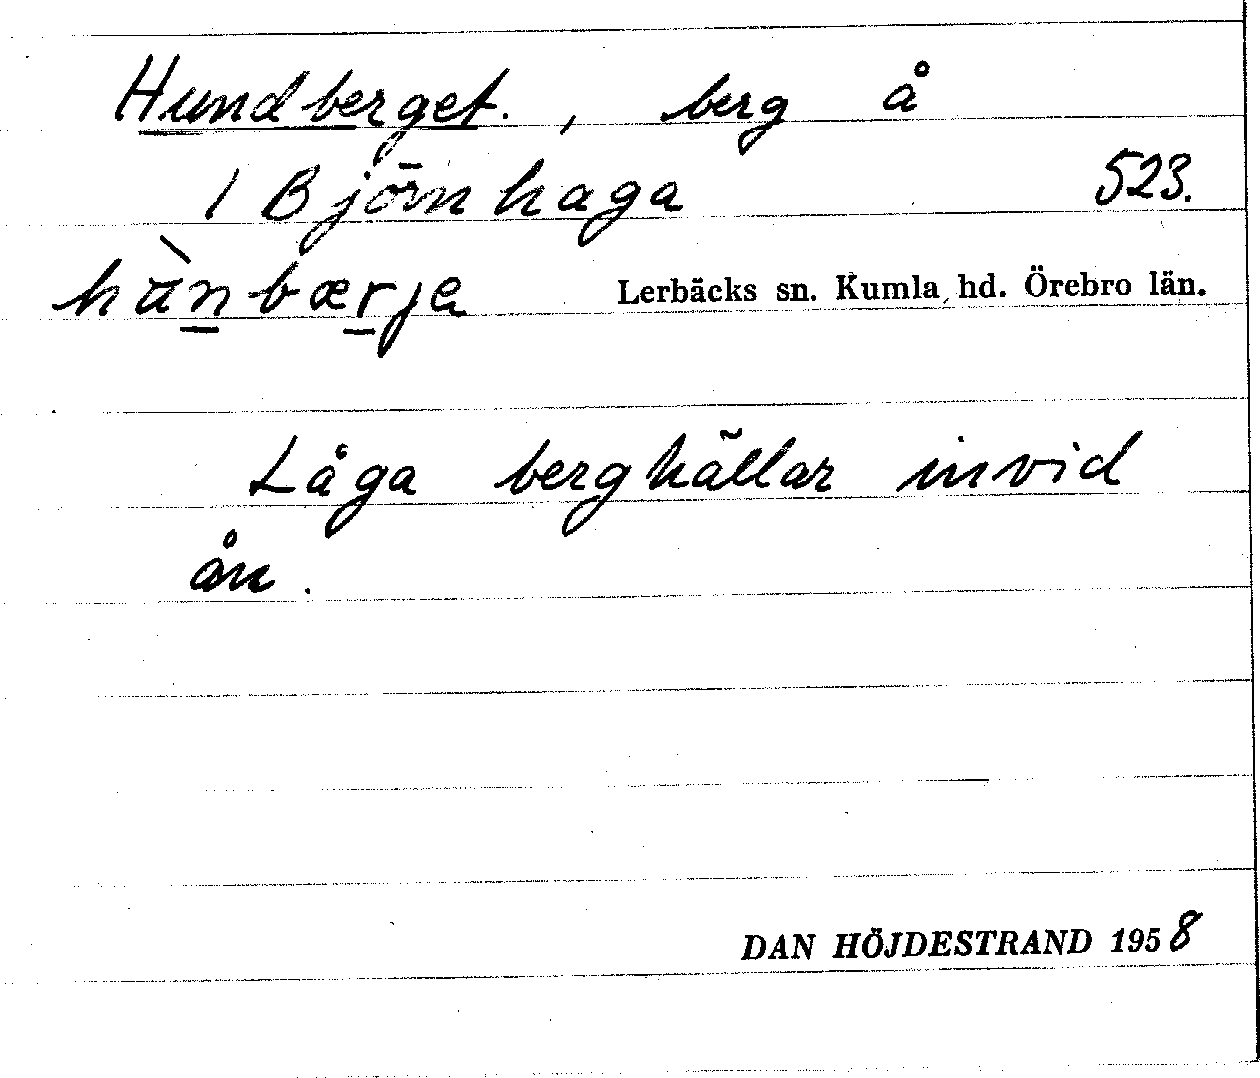 Hundberget. , berg å
1 Björnhaga 523.
hä̀n̲bær̲ja Lerbäcks sn. Kumla hd. Örebro län.
Låga berghällar invid
ån.
DAN HÖJDESTRAND 1958